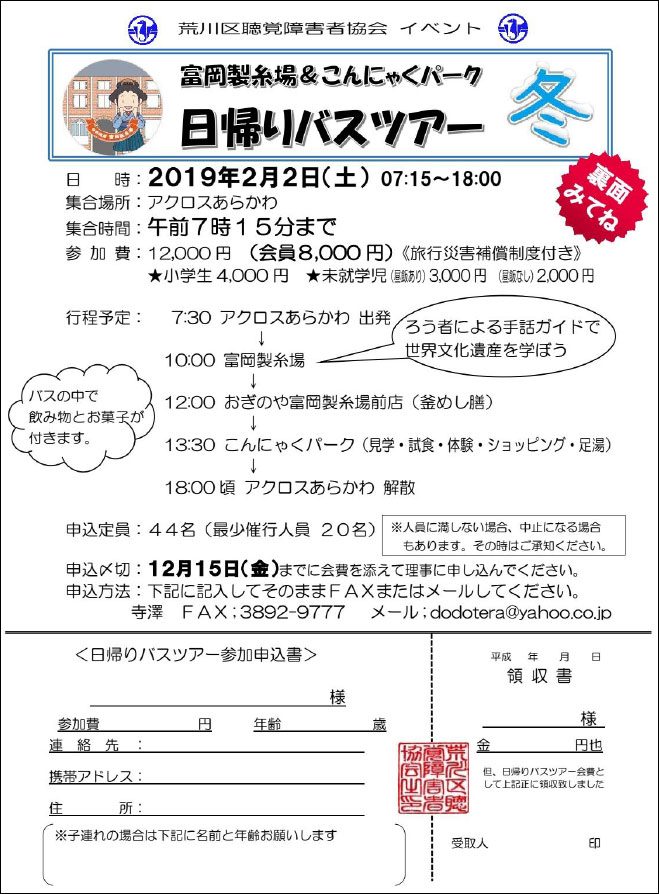 荒川区聴覚障害者協会 イベント
富岡製糸場＆こんにゃくパーク
日帰りバスツアー
冬
裏面
みてね
日　　時：2019年2月2日（土） 07:15～18:00
集合場所：アクロスあらかわ
集合時間：午前７時１５分まで
参 加 費：12,000円 （会員8,000円）《旅行災害補償制度付き》
★小学生4,000円 ★未就学児（昼飯あり）3,000円 （昼飯なし）2,000円
行程予定： 7:30 アクロスあらかわ 出発
↓
ろう者による手話ガイドで
世界文化遺産を学ぼう
10:00 富岡製糸場
↓
バスの中で
飲み物とお菓子が
付きます。
12:00 おぎのや富岡製糸場前店（釜めし膳）
↓
13:30 こんにゃくパーク（見学・試食・体験・ショッピング・足湯）
↓
18:00頃 アクロスあらかわ 解散
申込定員：４４名（最少催行人員 ２０名）
※人員に満しない場合、中止になる場合
もあります。その時はご承知ください。
申込〆切：12月15日（金）までに会費を添えて理事に申し込んでください。
申込方法：下記に記入してそのままＦＡＸまたはメールしてください。
寺澤 ＦＡＸ；3892-9777 メール；dodotera@yahoo.co.jp
＜日帰りバスツアー参加申込書＞
様
参加費 円 年齢 歳
連 絡 先 ：
携帯アドレス：
住　　所：
※子連れの場合は下記に名前と年齢お願いします
平成 年 月 日
領 収 書
様
金 円也
但、日帰りバスツアー会費と
して上記正に領収致しました
受取人 印
荒川区聴
覚障害者
協会之印